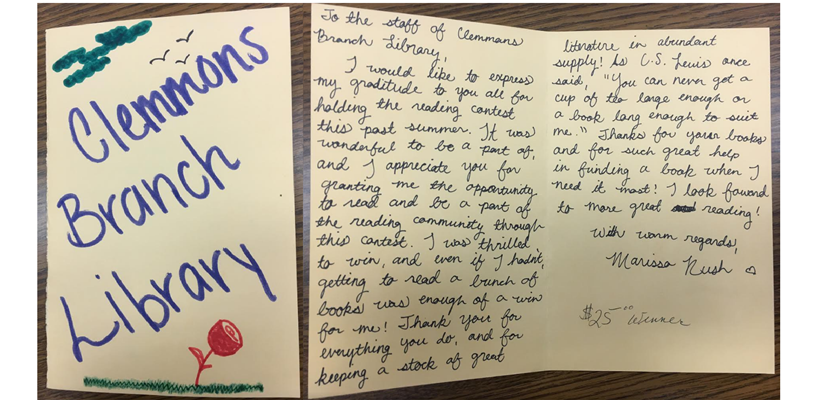 Clemmons
Branch
Library
To the staff of Clemmans
Branch Library,
I would like to express
my graditude to you all for
holding the reading contest
this past summer. It was
wonderful to be a part of,
and I appreciate you for
granting me the opportunity
to read and be a part of
the reading community through
this contest. I was thrilled
to win, and even if I hadn't,
getting to read a bunch of
books was enough of a win
for me! Thank you for
everything you do, and for
keeping a stock of great
literature in abundant
supply! As C.S. Lewis once
said, "You can never get a
cup of tea large enough or
a book long enough to suit
me." Thanks for your books
and for such great help
in funding a book when I
need it most! I look foward
to more great reading!
With warm regards,
Marissa Rush
$25.00 Winner